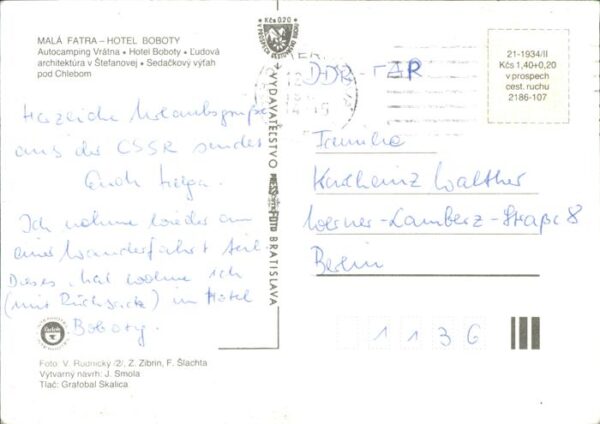 MALÁ FATRA – HOTEL BOBOTY
Autocamping Vrátna • Hotel Boboty • Ľudová
architektúra v Štefanovej • Sedačkový výťah
pod Chlebom
Herzliche Urlaubsgrüße
aus der CSSR sendet
Euch Helga.
Ich nehme wieder an
einer Wanderfahrt teil.
Dieses Mal wohne ich
(mit Rücksäcke) im Hotel
Boboty.
Foto: V. Rudnický /2/, Z. Zibrin, F. Šlachta
Výtvarný návrh: J. Smola
Tlač: Grafobal Skalica
Kčs 0,20
VYDAVATEĽSTVO PRESSFOTO BRATISLAVA
21-1934/II
Kčs 1,40+0,20
v prospech
cest. ruchu
2186-107
DDR-
Familie
Karlheinz Walther
Werner-Lamberz-Straße 8
Berlin
1136